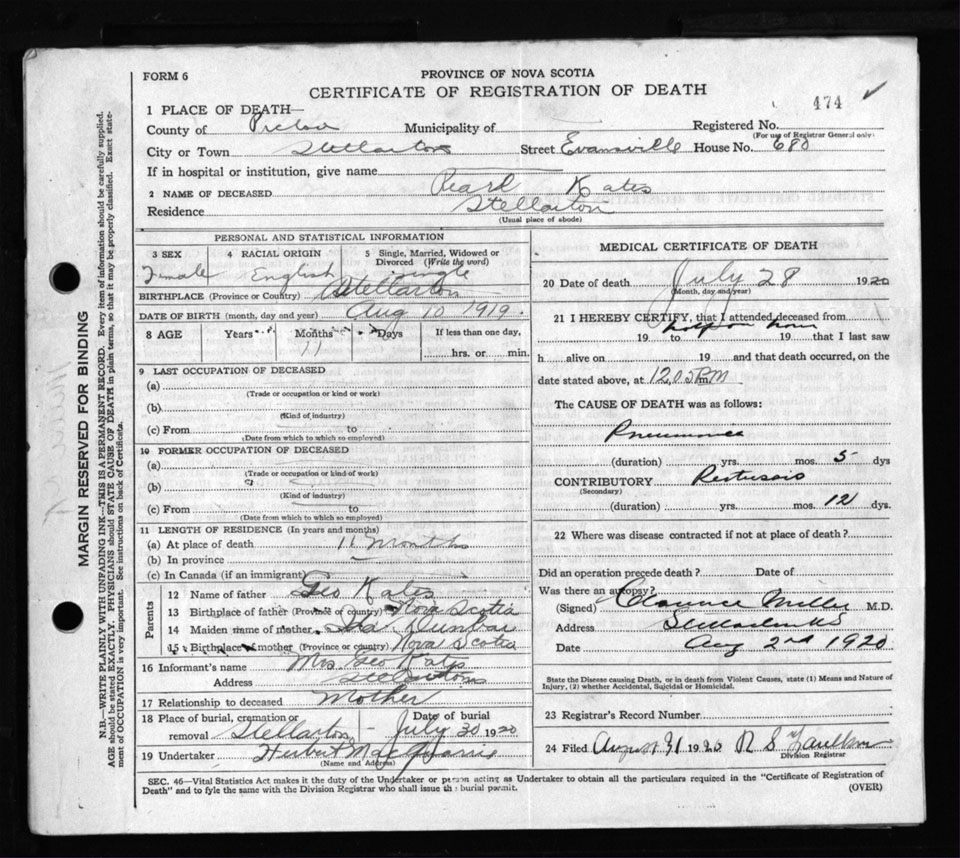 FORM 6
PROVINCE OF NOVA SCOTIA
CERTIFICATE OF REGISTRATION OF DEATH
474 ✓
1 PLACE OF DEATH—
County of Pictou Municipality of Registered No.
(For use of Registrar General only)
City or Town Stellarton Street Evansville House No. 680
If in hospital or institution, give name
2 NAME OF DECEASED Pearl Kates
Residence Stellarton
(Usual place of abode)
PERSONAL AND STATISTICAL INFORMATION
3 SEX 4 RACIAL ORIGIN 5 Single, Married, Widowed or Divorced (Write the word)
Female English Single
BIRTHPLACE (Province or Country) Stellarton
DATE OF BIRTH (month, day and year) Aug 10 1919.
8 AGE Years Months Days If less than one day,
11 hrs. or min.
9 LAST OCCUPATION OF DECEASED
(a)
(Trade or occupation or kind or work)
(b)
(Kind of industry)
(c) From to
(Date from which to which so employed)
10 FORMER OCCUPATION OF DECEASED
(a)
(Trade or occupation or kind of work)
(b)
(Kind of industry)
(c) From to
(Date from which to which so employed)
11 LENGTH OF RESIDENCE (In years and months)
(a) At place of death 11 Months
(b) In province
(c) In Canada (if an immigrant)
Parents
12 Name of father Geo Kates
13 Birthplace of father (Province or country) Nova Scotia
14 Maiden name of mother Ida Dunbar
15 Birthplace of mother (Province or country) Nova Scotia
16 Informant's name Mrs Geo Kates
Address Stellarton
17 Relationship to deceased Mother
18 Place of burial, cremation or removal Stellarton Date of burial July 30 1920
19 Undertaker Herbert
(Name and Address)
MEDICAL CERTIFICATE OF DEATH
20 Date of death July 28 1920
(Month, day and year)
21 I HEREBY CERTIFY, that I attended deceased from
19 to 19 that I last saw
h alive on 19 and that death occurred, on the
date stated above, at 12.05 P.M
The CAUSE OF DEATH was as follows:
Pneumonia
(duration) yrs. mos. 5 dys
CONTRIBUTORY
(Secondary)
(duration) yrs. mos. 12 dys.
22 Where was disease contracted if not at place of death?
Did an operation precede death? Date of
Was there an autopsy?
(Signed) Clarence Miller M.D.
Address Stellarton NS
Date Aug 2nd 1920
State the Disease causing Death, or in death from Violent Causes, state (1) Means and Nature of Injury, (2) whether Accidental, Suicidal or Homicidal.
23 Registrar's Record Number
24 Filed August 31 1920 R S
Division Registrar
SEC. 46—Vital Statistics Act makes it the duty of the Undertaker or person acting as Undertaker to obtain all the particulars required in the "Certificate of Registration of
Death" and to fyle the same with the Division Registrar who shall issue the burial permit.
(OVER)
MARGIN RESERVED FOR BINDING
N.B.—WRITE PLAINLY WITH UNFADING INK—THIS IS A PERMANENT RECORD. Every item of information should be carefully supplied.
AGE should be stated EXACTLY. PHYSICIANS should STATE CAUSE OF DEATH in plain terms, so that it may be properly classified. Exact state-
ment of OCCUPATION is very important. See instructions on back of Certificate.